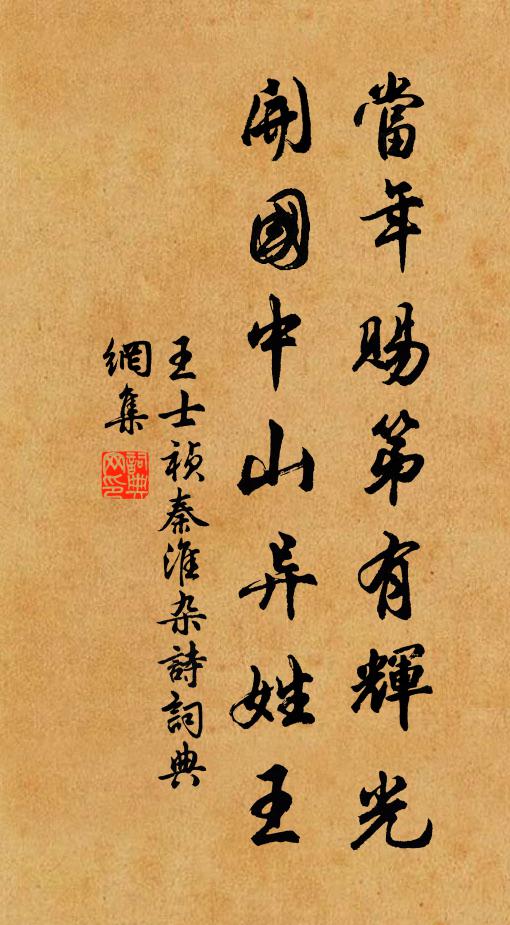 當年賜第有輝光
開國中山异姓王
王士祯秦淮杂詩詞典
網集
詞典
网印